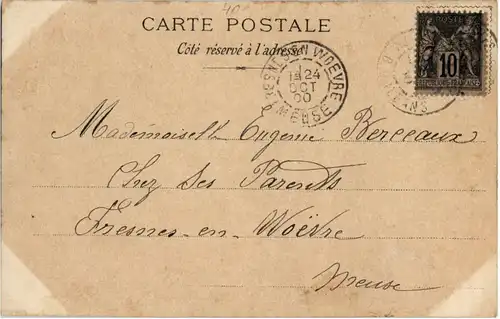 40
CARTE POSTALE
Côté réservé à l'adresse
FRESNES-EN-WOEVRE
1E
24
OCT
00
MEUSE
POSTES
10
REPUBLIQUE FRANCAISE
Mademoiselle Eugenie Berceaux
Chez Ses Parents
Fresnes-en-Woëvre
Meuse